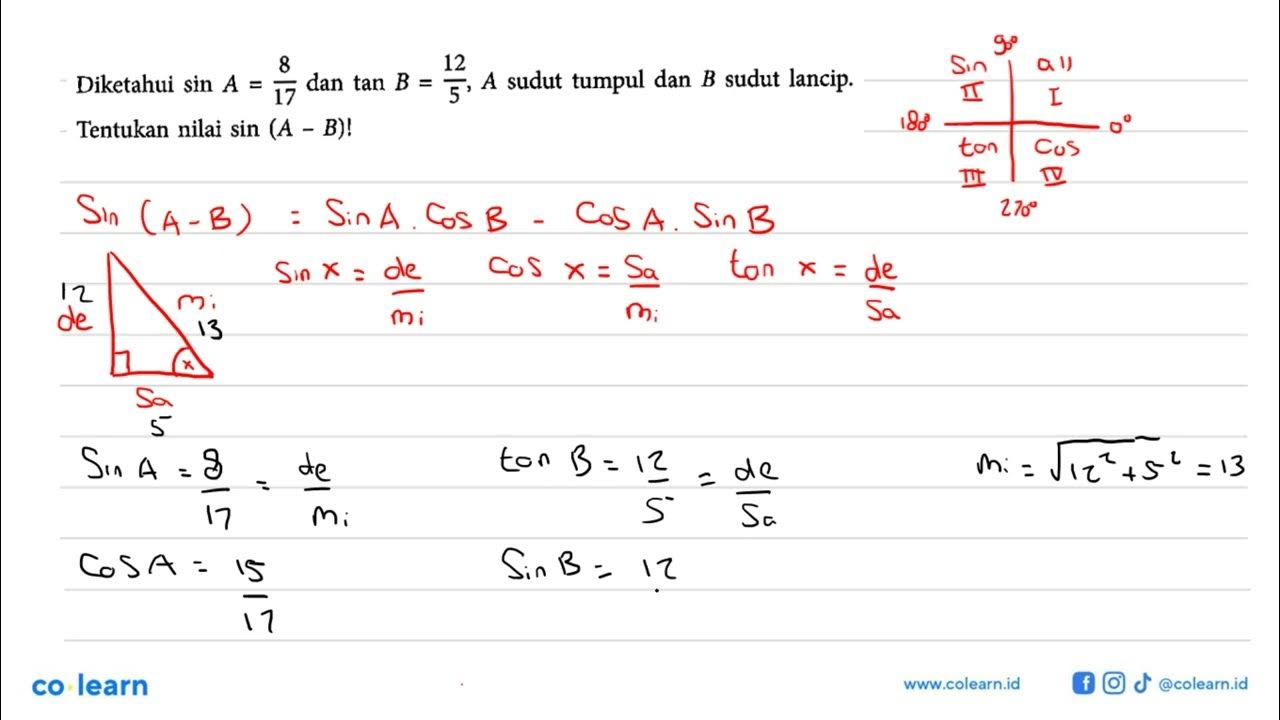 Diketahui sin A = 8/17 dan tan B = 12/5, A sudut tumpul dan B sudut lancip.
Tentukan nilai sin (A – B)!
90°
Sin all
II I
180° 0°
tan Cos
III IV
270°
Sin (A - B) = Sin A . Cos B - Cos A . Sin B
Sin x = de/mi Cos x = Sa/mi tan x = de/Sa
12
de
mi
13
x
Sa
5
Sin A = 8/17 = de/mi tan B = 12/5 = de/Sa mi = √12² + 5² = 13
Cos A = 15/17 Sin B = 12
co·learn www.colearn.id @colearn.id